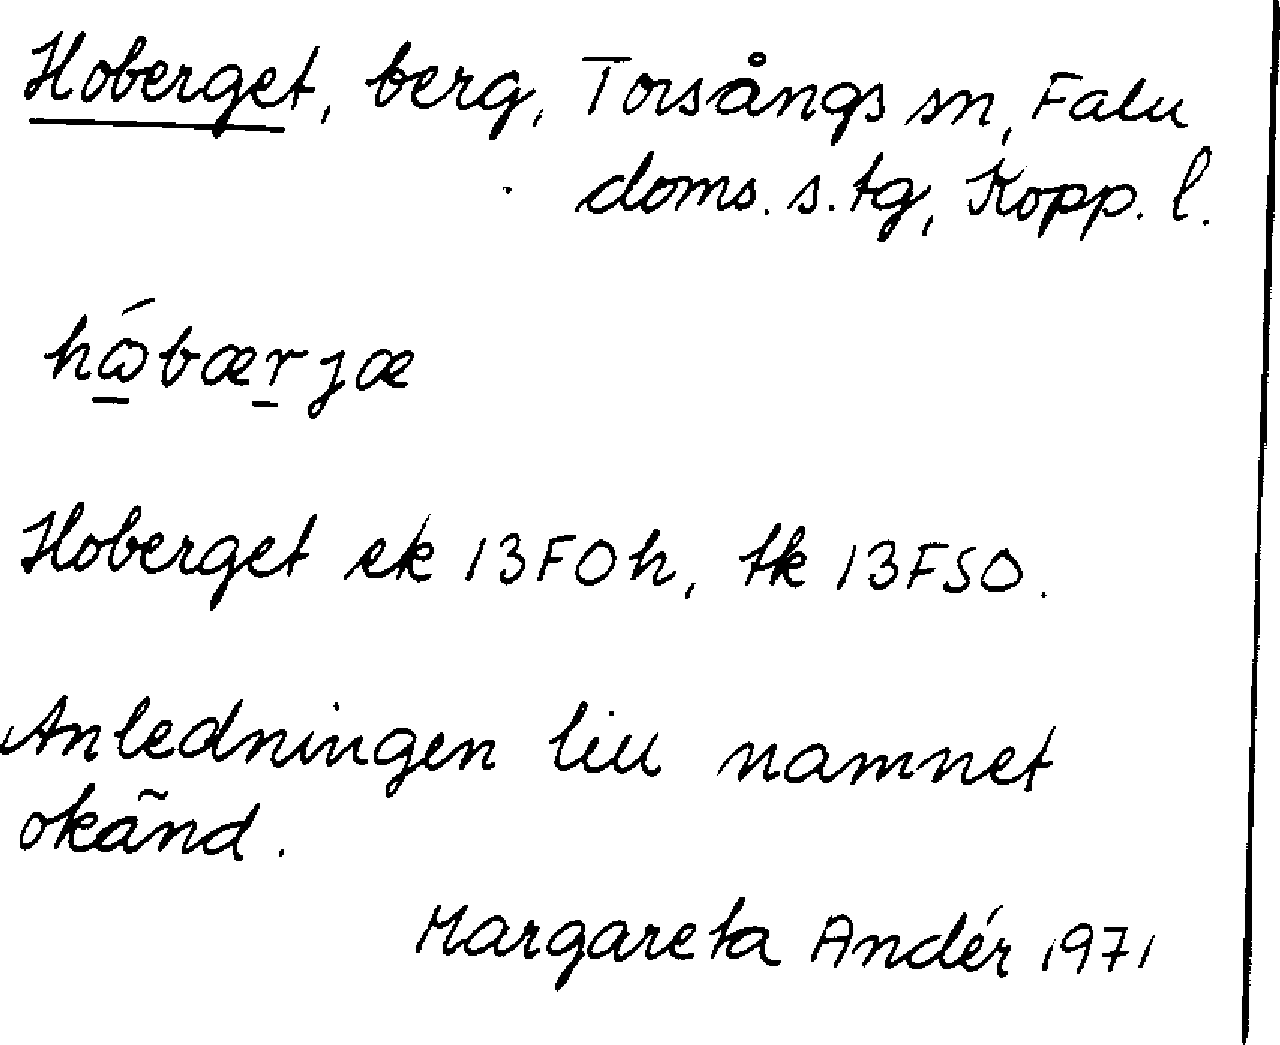 Hoberget, berg, Torsångs sn, Falu
doms. s. tg, Kopp. l.
hώbærjæ
Hoberget ek 13F0h, tk 13FSO.
Anledningen till namnet
okänd.
Margareta Andér 1971